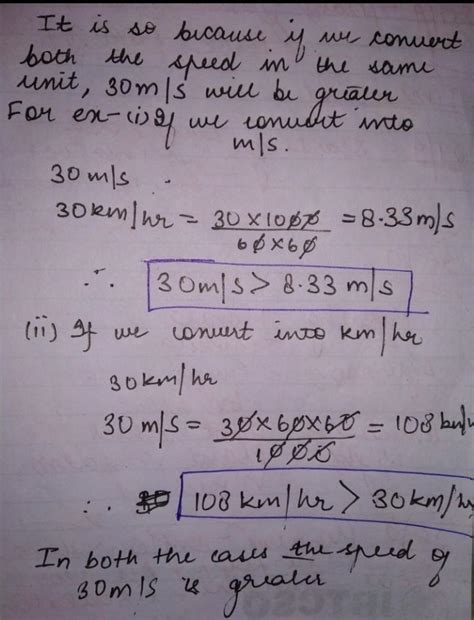 It is so because if we convert
both the speed in the same
unit, 30m/s will be greater
For ex- (i) If we convert into
m/s.
30 m/s
30km/hr = 30 × 1000 / 60 × 60 = 8.33 m/s
∴ 30m/s > 8.33 m/s
(ii) If we convert into km/hr
30km/hr
30 m/s = 30 × 60 × 60 / 1000 = 108 km/
∴ 108 km/hr > 30km/hr
In both the cases the speed of
30m/s is greater